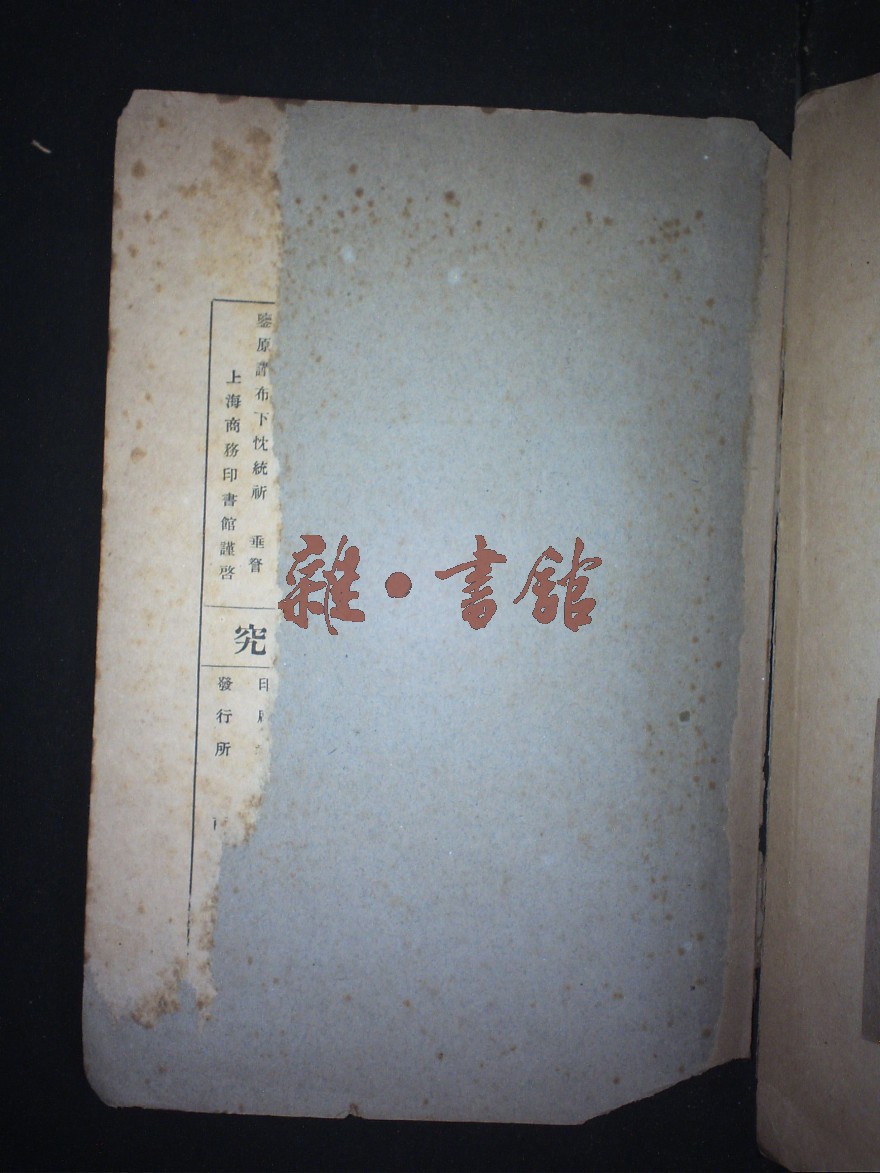 鑒原諸布下忱統祈 垂詧
上海商務印書館謹啓
究
印
發行所
雜·書館